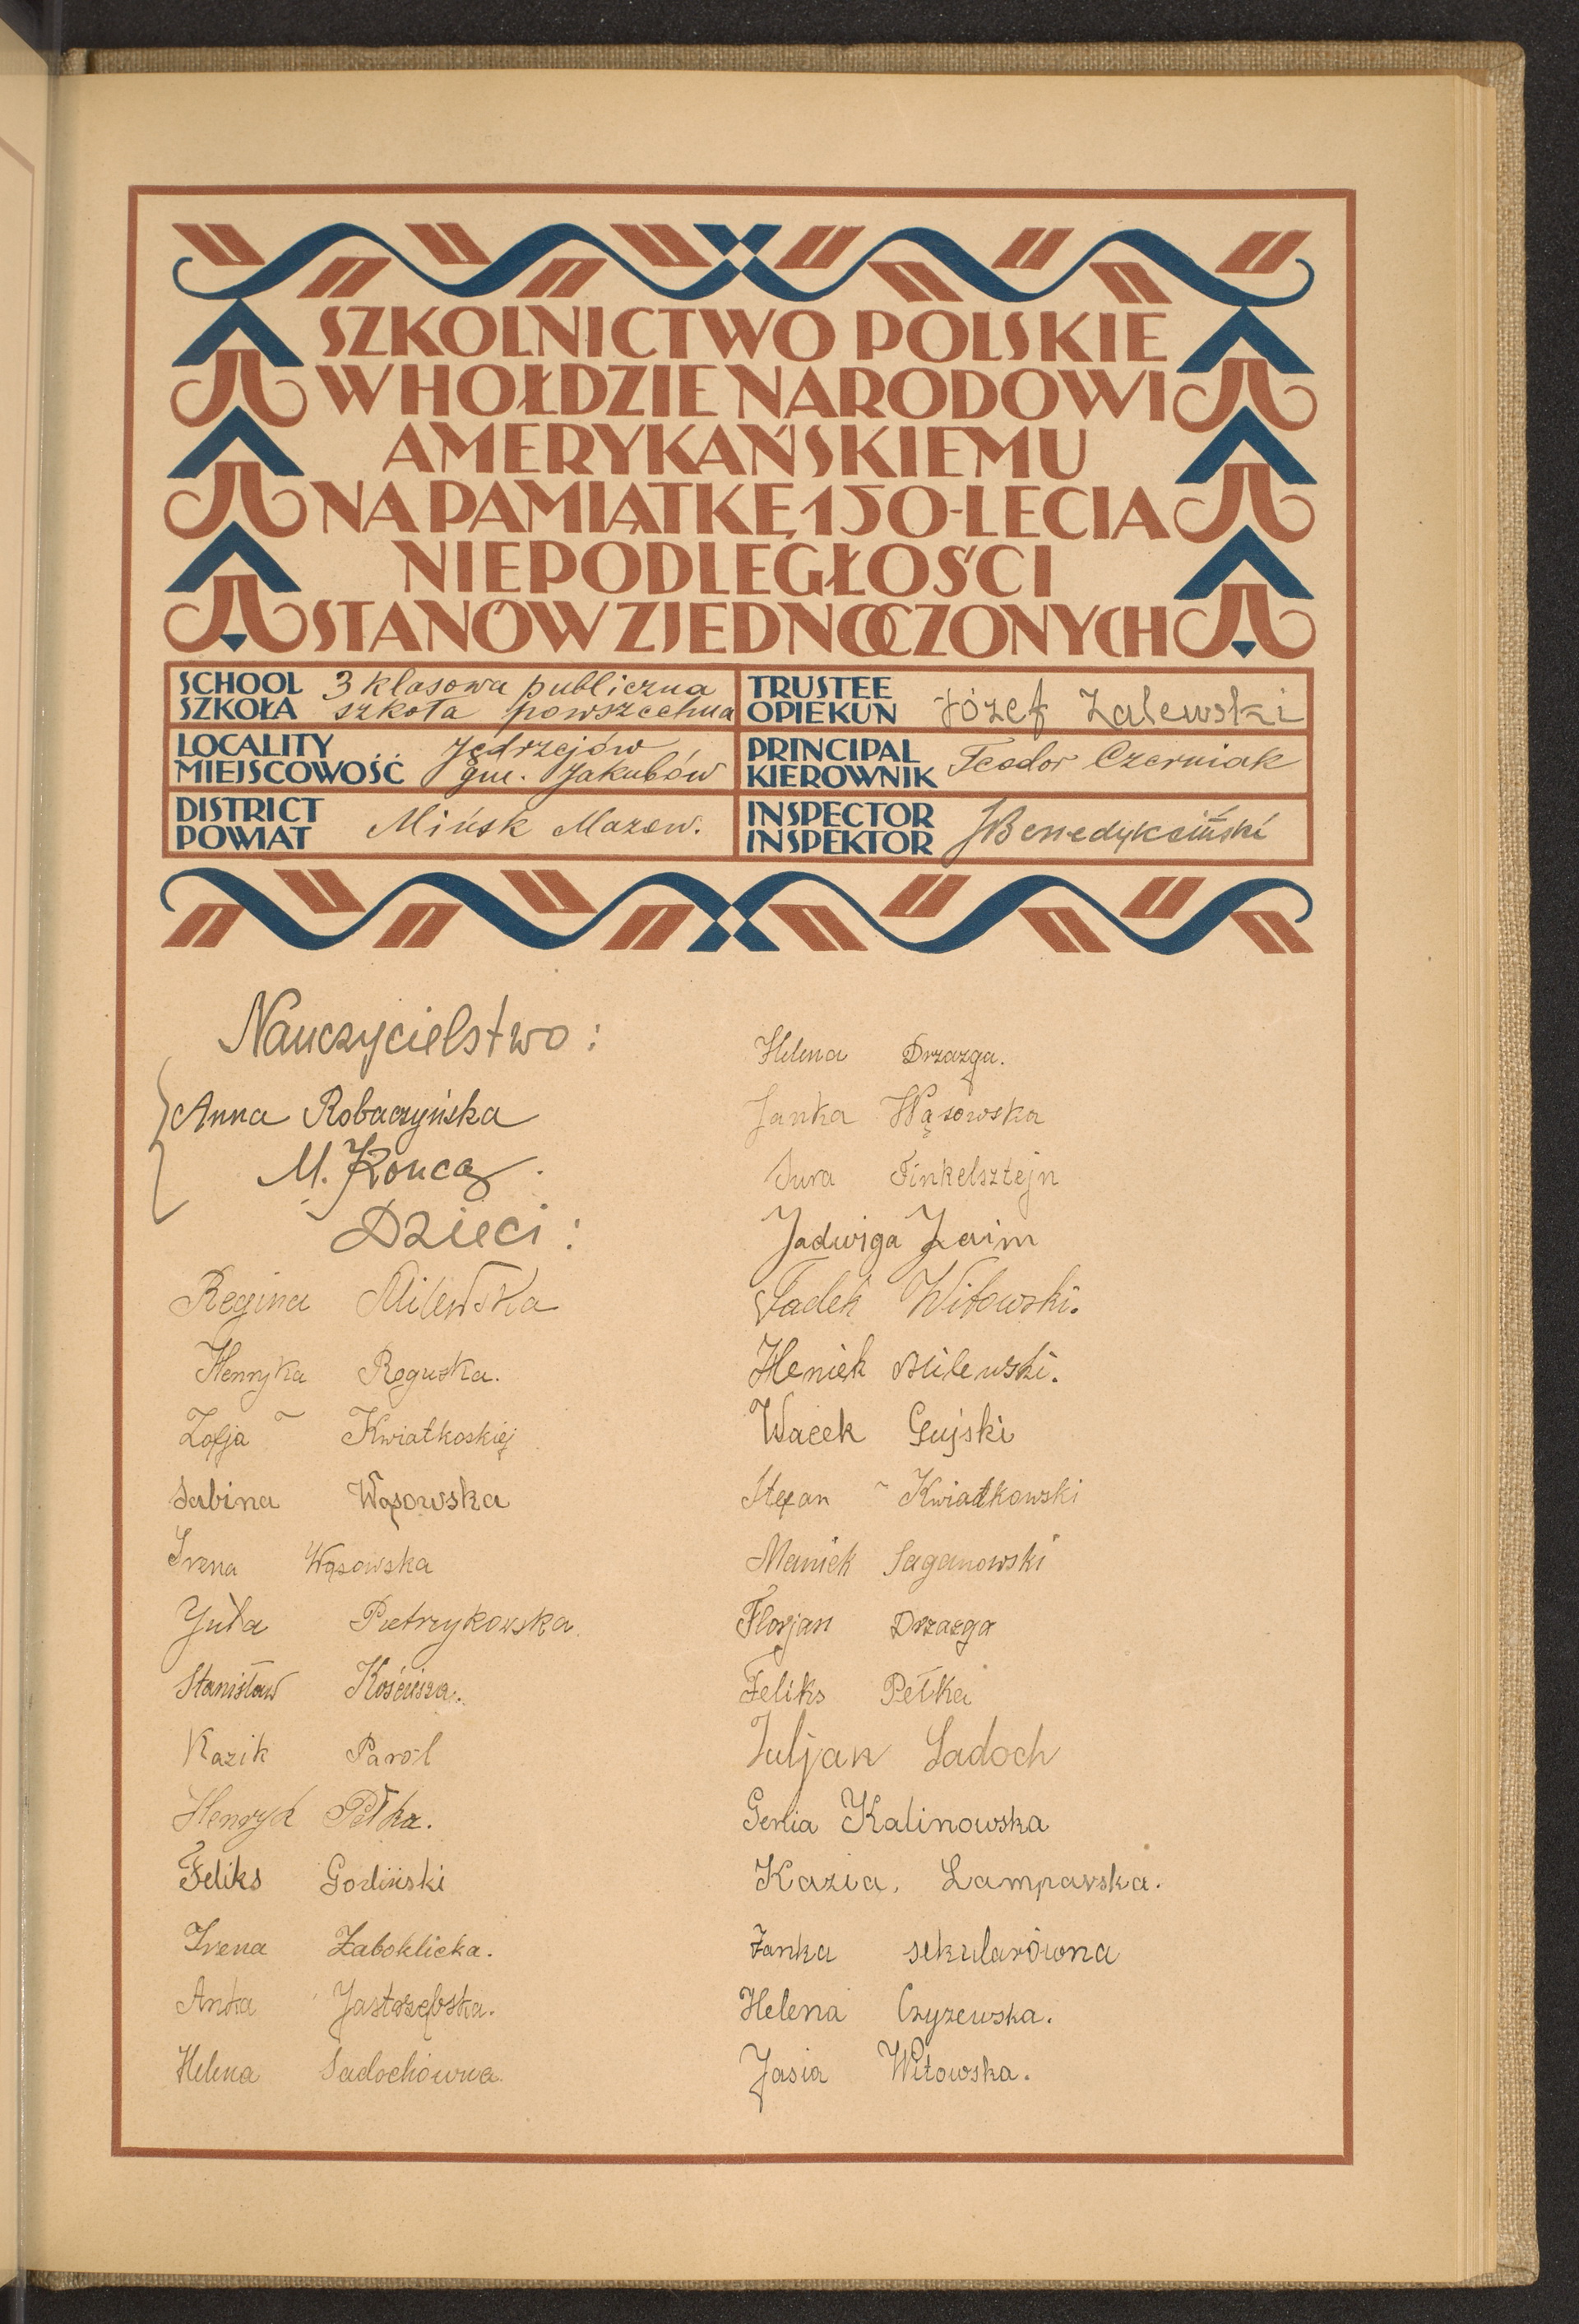 SZKOLNICTWO POLSKIE
W HOŁDZIE NARODOWI
AMERYKAŃSKIEMU
NA PAMIĄTKĘ 150-LECIA
NIEPODLEGŁOŚCI
STANÓW ZJEDNOCZONYCH
SCHOOL
SZKOŁA
3 klasowa publiczna
szkoła powszechna
LOCALITY
MIEJSCOWOŚĆ
Jędrzejów
gm. Jakubów
DISTRICT
POWIAT
Mińsk Mazow.
TRUSTEE
OPIEKUN
Józef Zalewski
PRINCIPAL
KIEROWNIK
Teodor Czerniak
INSPECTOR
INSPEKTOR
Benedykciński
Nauczycielstwo:
Anna Robaczyńska
M. Konca
Dzieci:
Regina Milewska
Henryka Roguska.
Zofja Kwiatkoskiej
Sabina Wąsowska
Irena Wąsowska
Juta Pietrzykowska.
Stanisław Kościesza.
Kazik Paról
Henryk Pełka.
Feliks Gorliński
Irena Żaboklicka.
Anka Jastrzębska.
Helena Sadochówna.
Helena Drzazga.
Janka Wąsowska
Sura Finkelsztejn
Jadwiga Zaim
Tadek Witowski.
Heniek Milewski.
Wacek Gujski
Stefan Kwiatkowski
Maniek Saganowski
Florjan Drzazga
Feliks Pełka
Juljan Sadoch
Genia Kalinowska
Kazia. Lamparska.
Janka sekularówna
Helena Czyzewska.
Jasia Witowska.